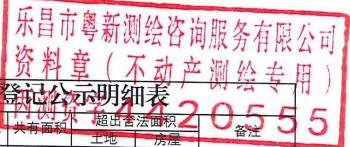 乐昌市粤新测绘咨询服务有限公司
资料章（不动产测绘专用）
登记公示明细表
丙测资字4420555
共有面积 超出合法面积 备注
土地 房屋